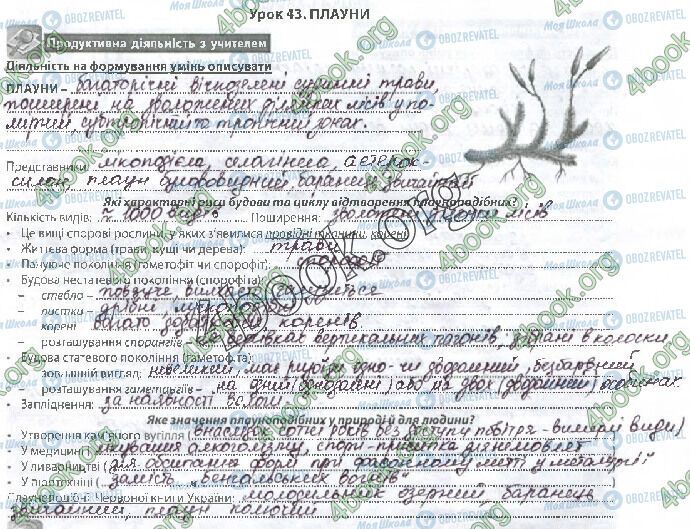 Урок 43. ПЛАУНИ
Продуктивна діяльність з учителем
Діяльність на формування умінь описувати
ПЛАУНИ – багаторічні вічнозелені судинні трави,
поширені на зволожених ділянках лісів у по-
мірній, субтропічній та тропічній зонах.
Представники: лікоподієла, селагінела, астерок-
силон, плаун булавовидний, баранець звичайний
Які характерні риси будови та циклу відтворення плауноподібних?
Кількість видів: ≈ 1000 видів Поширення: зволожені ділянки лісів
Це вищі спорові рослини, у яких з'явилися провідні тканини, корені
Життєва форма (трави, кущі чи дерева): трави
Пануюче покоління (гаметофіт чи спорофіт): спорофіт
Будова нестатевого покоління (спорофіта):
– стебло – повзуче
– листки – дрібні,
– корені – багато коренів
– розташування спорангіїв – вертикальних пагонів, зібрані в колоски
Будова статевого покоління (гаметофіта):
– зовнішній вигляд: невеликий, має різоїди одно- чи дводомний, безбарвний
– розташування гаметангіїв – на одній (однодомні) або на двох (дводомний) рослинах
Запліднення: за наявності води
Яке значення плауноподібних у природі й для людини?
Утворення кам'яного вугілля ( без доступу повітря - вимерлі види)
У медицині ( алкоголізму, спори - присипка для немовлят
У ливарництві ( для обсипання форм при фасонному литті у металургії
У піротехніці ( замість „бенгальських вогнів" )
Плауноподібні Червоної книги України: молодильник озерний, баранець
звичайний, плаун